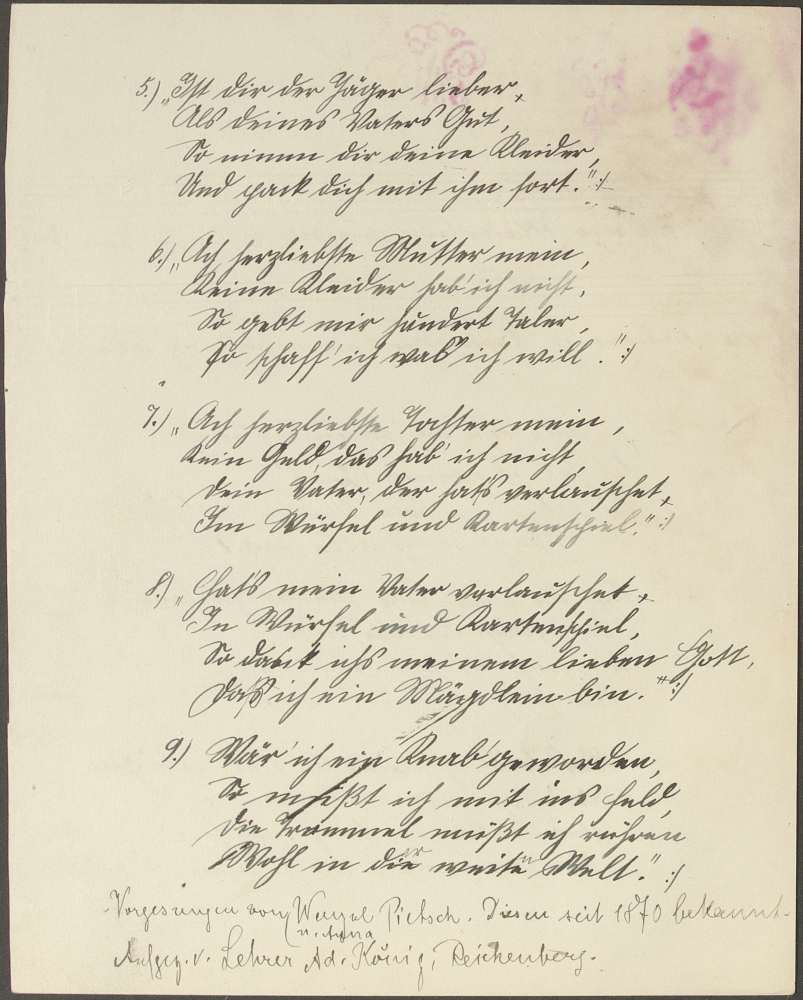 5.) „Ist dir der Jäger lieber,
Als deines Vaters Gut,
So nimm dir deine Kleider,
Und pack dich mit ihm fort.“ :/
6.) „Ach herzliebste Mutter mein,
Keine Kleider hab' ich nicht,
So gebt mir hundert Taler,
So schaff' ich was ich will.“ :/
7.) „Ach herzliebste Tochter mein,
Kein Geld, das hab' ich nicht,
Dein Vater, der hat's verlauschet,
Im Würfel und Kartenspiel.“ :/
8.) „Hat's mein Vater verlauschet,
In Würfel und Kartenspiel,
So dank ichs meinem lieben Gott,
Daß ich ein Mägdlein bin.“ :/
9.) Wär' ich ein Knab' geworden,
So müßt ich mit ins Feld,
Die Trommel müßt ich rühren
Wohl in der weiten Welt.“ :/
Vorgesungen von Wenzel Pietsch. Diesen seit 1870 bekannt.
u. Anna
Aufgez. v. Lehrer Ad. König, Reichenberg.